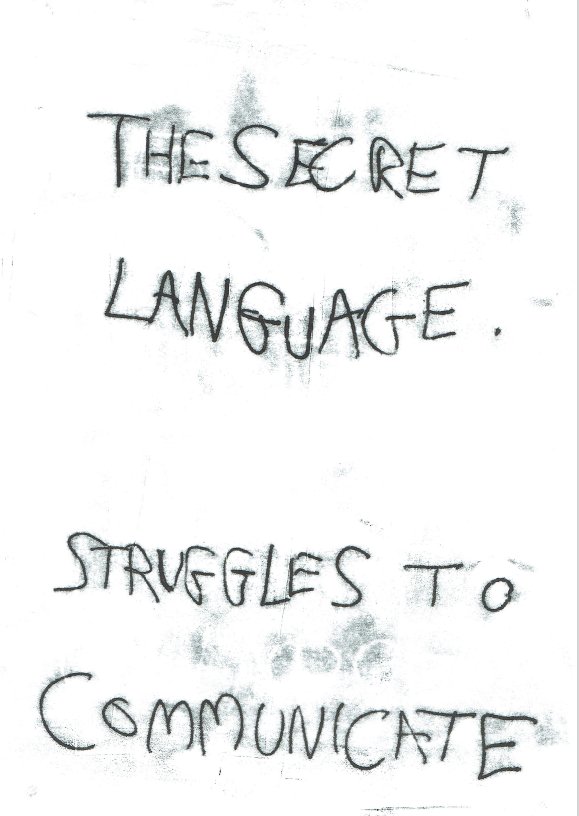 THE SECRET
LANGUAGE.
STRUGGLES TO
COMMUNICATE